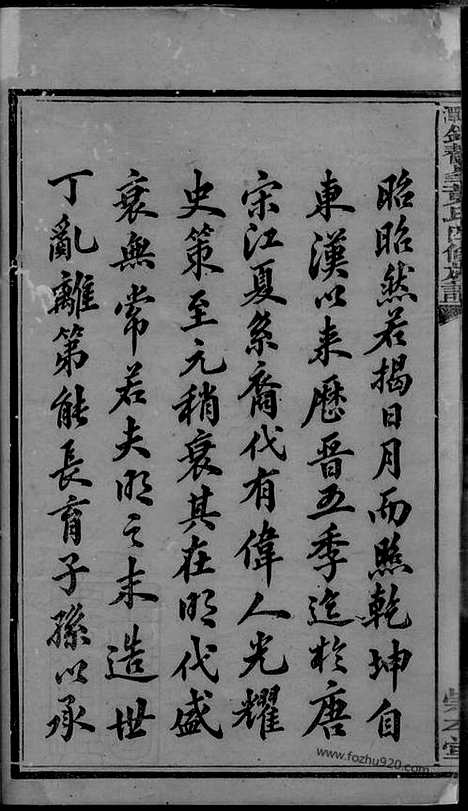 昭昭然若揭日月而照乾坤自
東漢以来歷晉五季迄於唐
宋江夏系裔代有偉人光耀
史策至元稍衰其在明代盛
衰無常若夫明之末造世
丁亂離第能長育子孫以承
www.fozhu920.com